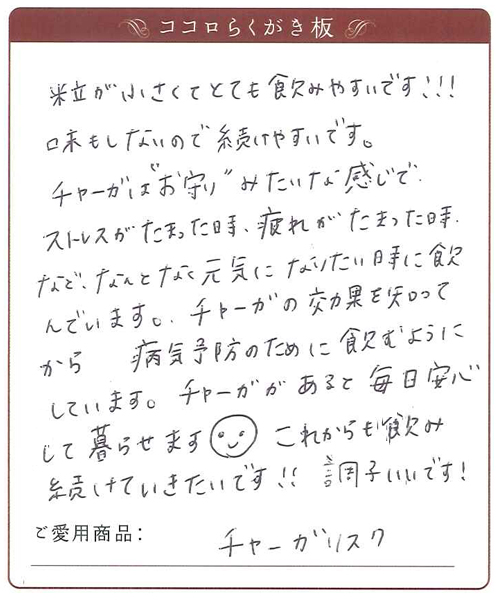 ココロらくがき板
粒が小さくてとても飲みやすいです!!!
味もしないので続けやすいです。
チャーガは“お守り”みたいな感じで
ストレスがたまった時、疲れがたまった時、
など、なんとなく元気になりたい時に飲
んでいます。チャーガの効果を知って
から 病気予防のために飲むように
しています。チャーガがあると毎日安心
して暮らせます これからも飲み
続けていきたいです!! 調子いいです!
ご愛用商品:
チャーガリスク